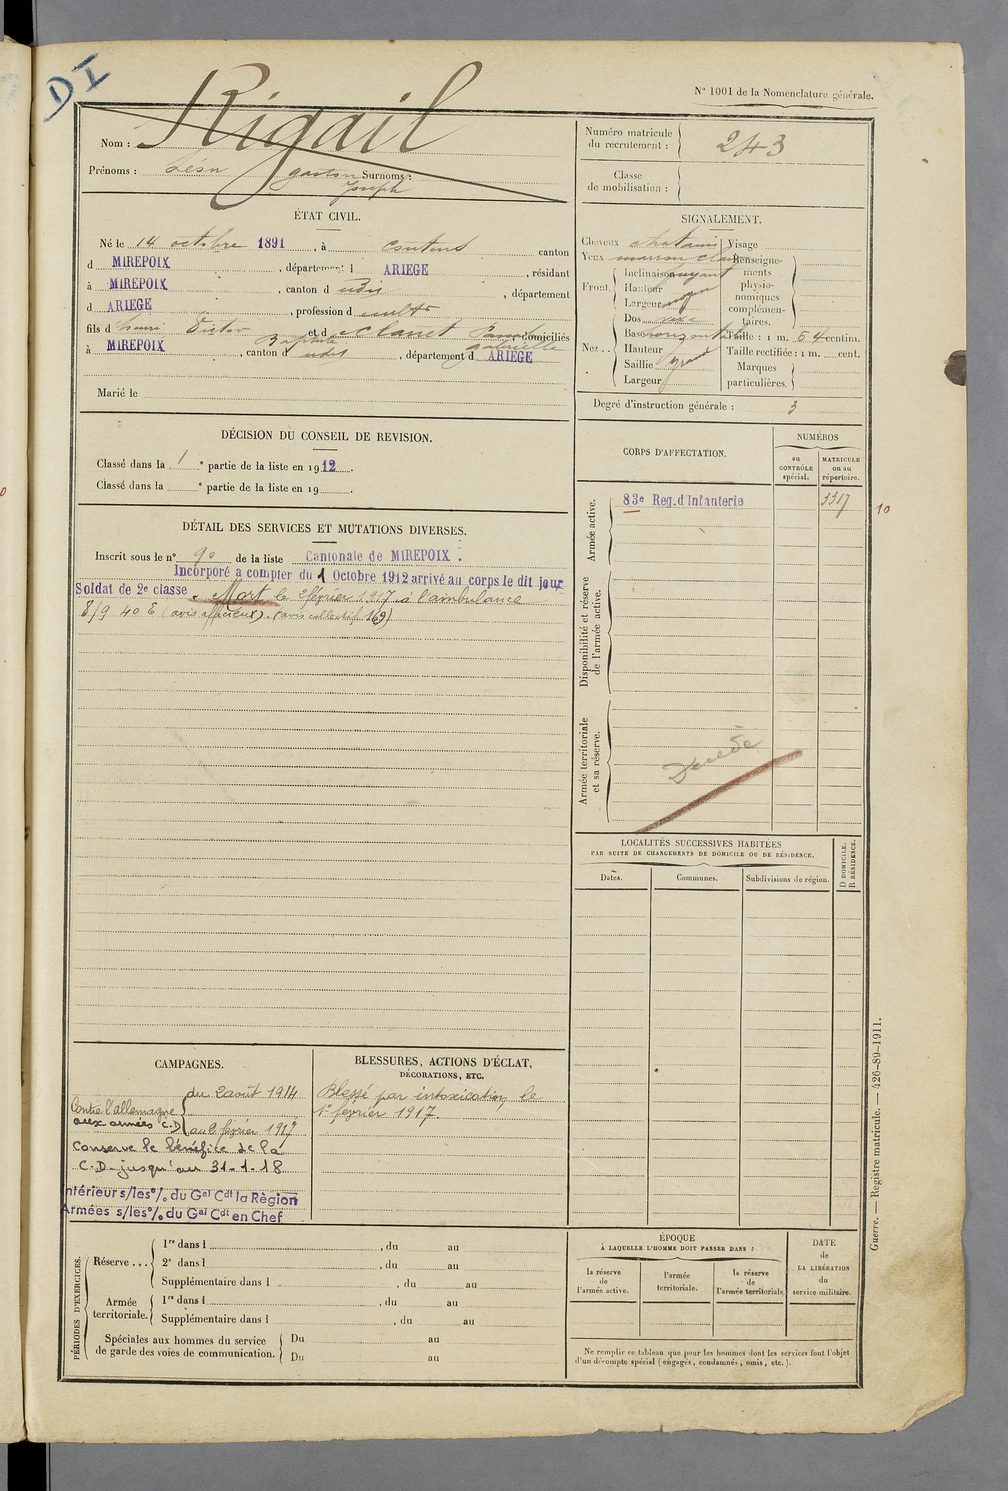 DI
N° 1001 de la Nomenclature générale.
Rigail
Nom :
Prénoms : Léon gaston Surnoms :
Joseph
Numéro matricule du recrutement : 243
Classe de mobilisation :
ÉTAT CIVIL.
Né le 14 octobre 1891, à coutens canton
d MIREPOIX, département d ARIEGE, résidant
à MIREPOIX, canton d udis, département
d ARIEGE, profession d cultr
fils d'henri Victor et d eclanet domiciliés
Baptiste gabrielle
à MIREPOIX, canton d udis, département d ARIEGE
Marié le
SIGNALEMENT.
Cheveux chatains
Yeux marron clair
Front.
Inclinaison fuyant
Hauteur
Largeur moyen
Nez..
Dos vexe
Base horizontale
Hauteur
Saillie grand
Largeur
Visage
Renseignements physionomiques complémentaires.
Taille : 1 m. 64 centim.
Taille rectifiée : 1 m. cent.
Marques particulières.
Degré d'instruction générale : 3
DÉCISION DU CONSEIL DE REVISION.
Classé dans la 1e partie de la liste en 1912.
Classé dans la e partie de la liste en 19 .
DÉTAIL DES SERVICES ET MUTATIONS DIVERSES.
Inscrit sous le n° 90 de la liste Cantonale de MIREPOIX.
Incorporé a compter du 1 Octobre 1912 arrivé au corps le dit jour
Soldat de 2e classe. Mort le 2 février 1917 à l'ambulance
8/9 40 E (avis officieux). (avis collectif 169)
CORPS D'AFFECTATION.
NUMÉROS
au CONTRÔLE spécial.
MATRICULE ou au répertoire.
Armée active.
83e Reg. d'Infanterie 3317
10
Disponibilité et réserve de l'armée active.
Armée territoriale et sa réserve.
Décédé
LOCALITÉS SUCCESSIVES HABITÉES
PAR SUITE DE CHANGEMENTS DE DOMICILE OU DE RÉSIDENCE.
Dates.
Communes.
Subdivisions de région.
D DOMICILE.
R RÉSIDENCE.
CAMPAGNES.
Contre l'allemagne du 2 août 1914
aux armées C.D au 2 février 1917
Conserve le bénéfice de la
C.D. jusqu'au 31-1-18
Intérieur s/les % du Gal Cdt la Région
Armées s/les % du Gal Cdt en Chef
BLESSURES, ACTIONS D'ÉCLAT,
DÉCORATIONS, ETC.
Blessé par intoxication le
1er février 1917.
PÉRIODES D'EXERCICES.
Réserve ...
1re dans l , du au
2e dans l , du au
Supplémentaire dans l , du au
Armée territoriale.
1re dans l , du au
Supplémentaire dans l , du au
Spéciales aux hommes du service
de garde des voies de communication.
Du au
Du au
ÉPOQUE
À LAQUELLE L'HOMME DOIT PASSER DANS :
la réserve de l'armée active.
l'armée territoriale.
la réserve de l'armée territoriale.
DATE
de
LA LIBÉRATION
du
service militaire.
Ne remplir ce tableau que pour les hommes dont les services font l'objet
d'un décompte spécial (engagés, condamnés, omis, etc.).
Guerre. — Registre matricule. — 426-89-1911.